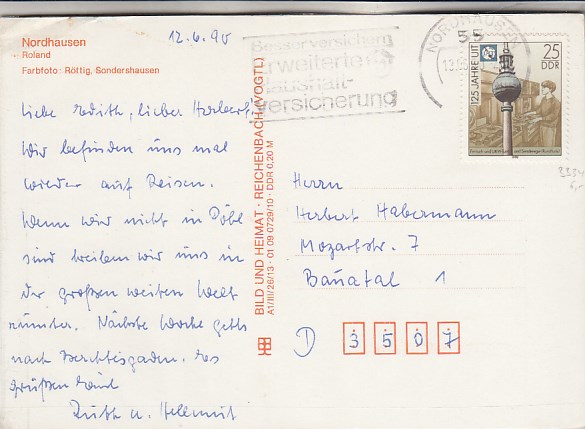 Nordhausen
Roland
Farbfoto: Röttig, Sondershausen
12.6.90
Besser versichern
Erweiterte
Haushalt-
versicherung
NORDHAUSEN
55
125 JAHRE UIT
25
DDR
Liebe Edith, lieber Herbert,
wir befinden uns mal
wieder auf Reisen.
Wenn wir nicht in
sind treiben wir uns in
der großen weiten Welt
rum. Nächste Woche gehts
nach Berchtesgaden. Es
grüßen Euch
Ruth u. Helmut
BILD UND HEIMAT · REICHENBACH (VOGTL)
A1/III/26/13 · 01 09 0729/10 · DDR 0,20 M
Herrn
Herbert Habermann
Mozartstr. 7
Baunatal 1
D 3507